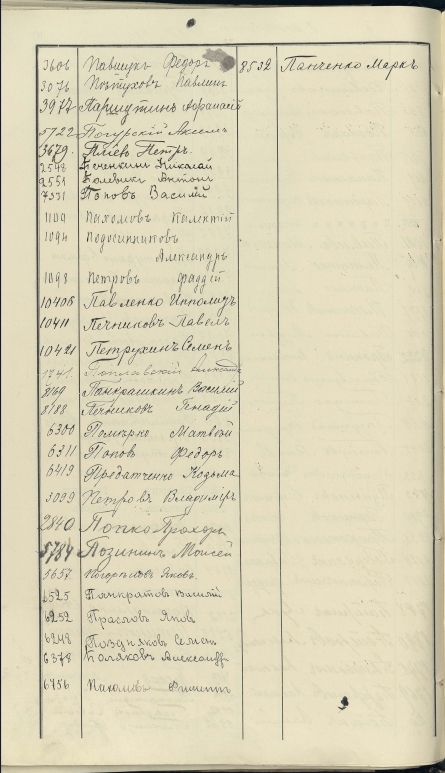 3606 Павлукъ Федоръ
3076 Пѣтуховъ Павлинъ
3977 Паршутинъ Афанасій
5722 Погурскій Аксель
3679. Плієвъ Петръ.
2548 Печенкинъ Николай
2551 Полевикъ Антонъ
7331 Поповъ Василій
1104 Пахомовъ
1094 Подосинниковъ
Александръ
1098 Петровъ Фаддей
10406 Павленко Ипполитъ
10411 Печниковъ Павелъ
10421 Петрухинъ Семенъ
1741 Поплавскій
8169 Панкрашкинъ Василій
8188 Печниковъ Генадій
6300 Матвѣй
6311 Поповъ Федоръ
6419 Предатченко Кодьма
3099 Петровъ Владимеръ
2840 Попко Прохоръ
5784 Позининъ Моисей
5657 Яковъ.
6525 Панкратовъ Василій
6252 Прасловъ Яковъ
6248 Поздняковъ Семенъ
6378 Поляковъ Александръ
6756 Филиппъ
8532 Панченко Маркъ